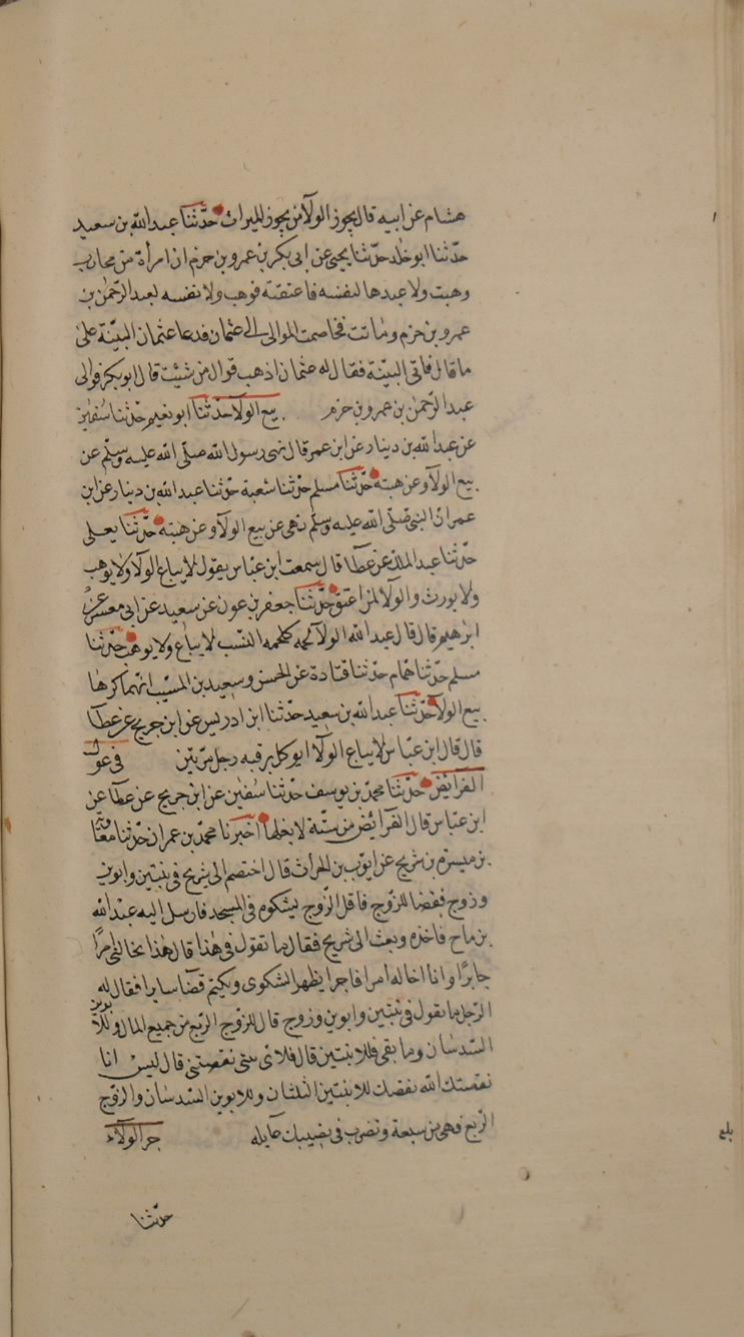 هشام عن ابيه قال يجوز الولآ من يجوز الميراث حدّثنا عبد الله بن سعيد
حدّثنا ابو خالد حدّثنا يحيى عن ابى بكر بن عمرو بن حزم ان امرأة من محارب
وهبت ولا عبدها لنفسه فاعتقته فوهب ولا نفسه لعبد الرّحمٰن بن
عمرو بن حزم وماتت فخاصمت الموالى الى عثمان فدعا عثمان البيّنة على
ما قال فاتى البيّنة فقال له عثمان اذهب فوال من شئت قال ابو بكر فوالى
عبد الرّحمٰن بن عمرو بن حزم بيع الولآ حدّثنا ابو نعيم حدّثنا سُفيٰن
عن عبد الله بن دينار عن ابن عمر قال نهى رسول الله صلّى الله عليه وسلّم عن
بيع الولآ وعن هبته حدّثنا مسلم حدّثنا شعبة حدّثنا عبد الله بن دينار عن ابن
عمر انّ النبىّ صلّى الله عليه وسلّم نهى عن بيع الولآ وعن هبته حدّثنا يعلى
حدّثنا عبد الملك عن عطآ قال سمعت ابن عبّاس يقول لا يباع الولآ ولا يوهب
ولا يورث والولآ لمن اعتق حدّثنا جعفر بن عون عن سعيد عن ابى معشر عن
ابرٰهيم قال قال عبد الله الولآ لحمة كلحمة النسب لا يباع ولا يوهب حدّثنا
مسلم حدّثنا همّام حدّثنا قتادة عن الحسن وسعيد بن المسيّب انّهما كرها
بيع الولآ حدّثنا عبد الله بن سعيد حدّثنا ابن ادريس عن ابن جريج عن عطآ
قال قال ابن عبّاس لا يباع الولآ ايوكل برقبه رجل مرّتين فى عول
الفرائض حدّثنا محمّد بن يوسف حدّثنا سُفيٰن عن ابن جريج عن عطآ عن
ابن عبّاس قال الفرائض من ستّة لا نعلها اخبرنا محمّد بن عمران حدّثنا معٰوية
بن ميسرة بن شريح عن ايّوب بن الحرث قال اختصم الى شريح فى بنتين وابوين
وزوج فقضا للزّوج فاقل الزّوج يشكوه فى المسجد فارسل اليه عبد الله
بن رباح فاخذه وبعث الى شريح فقال ما تقول فى هٰذا قال هٰذا يخالنى امرًا
جايرًا وانا اخاله امرا فاجرا يظهر الشكوى ويكتم قضآ سايرا فقال له
الرّجل ما تقول فى بنتين وابوين وزوج قال للزّوج الرّبع من جميع المال وللابوين
السّدسان وما بقى فللابنتين قال فلاى شى نقصتنى قال ليس انا
نقصتك الله نقصك للابنتين الثلثان وللابوين السّدسان وللزّوج
الرّبع فهى من سبعة ونصف فريضتك عايله جر الولآء
حدّثنا
بلغ